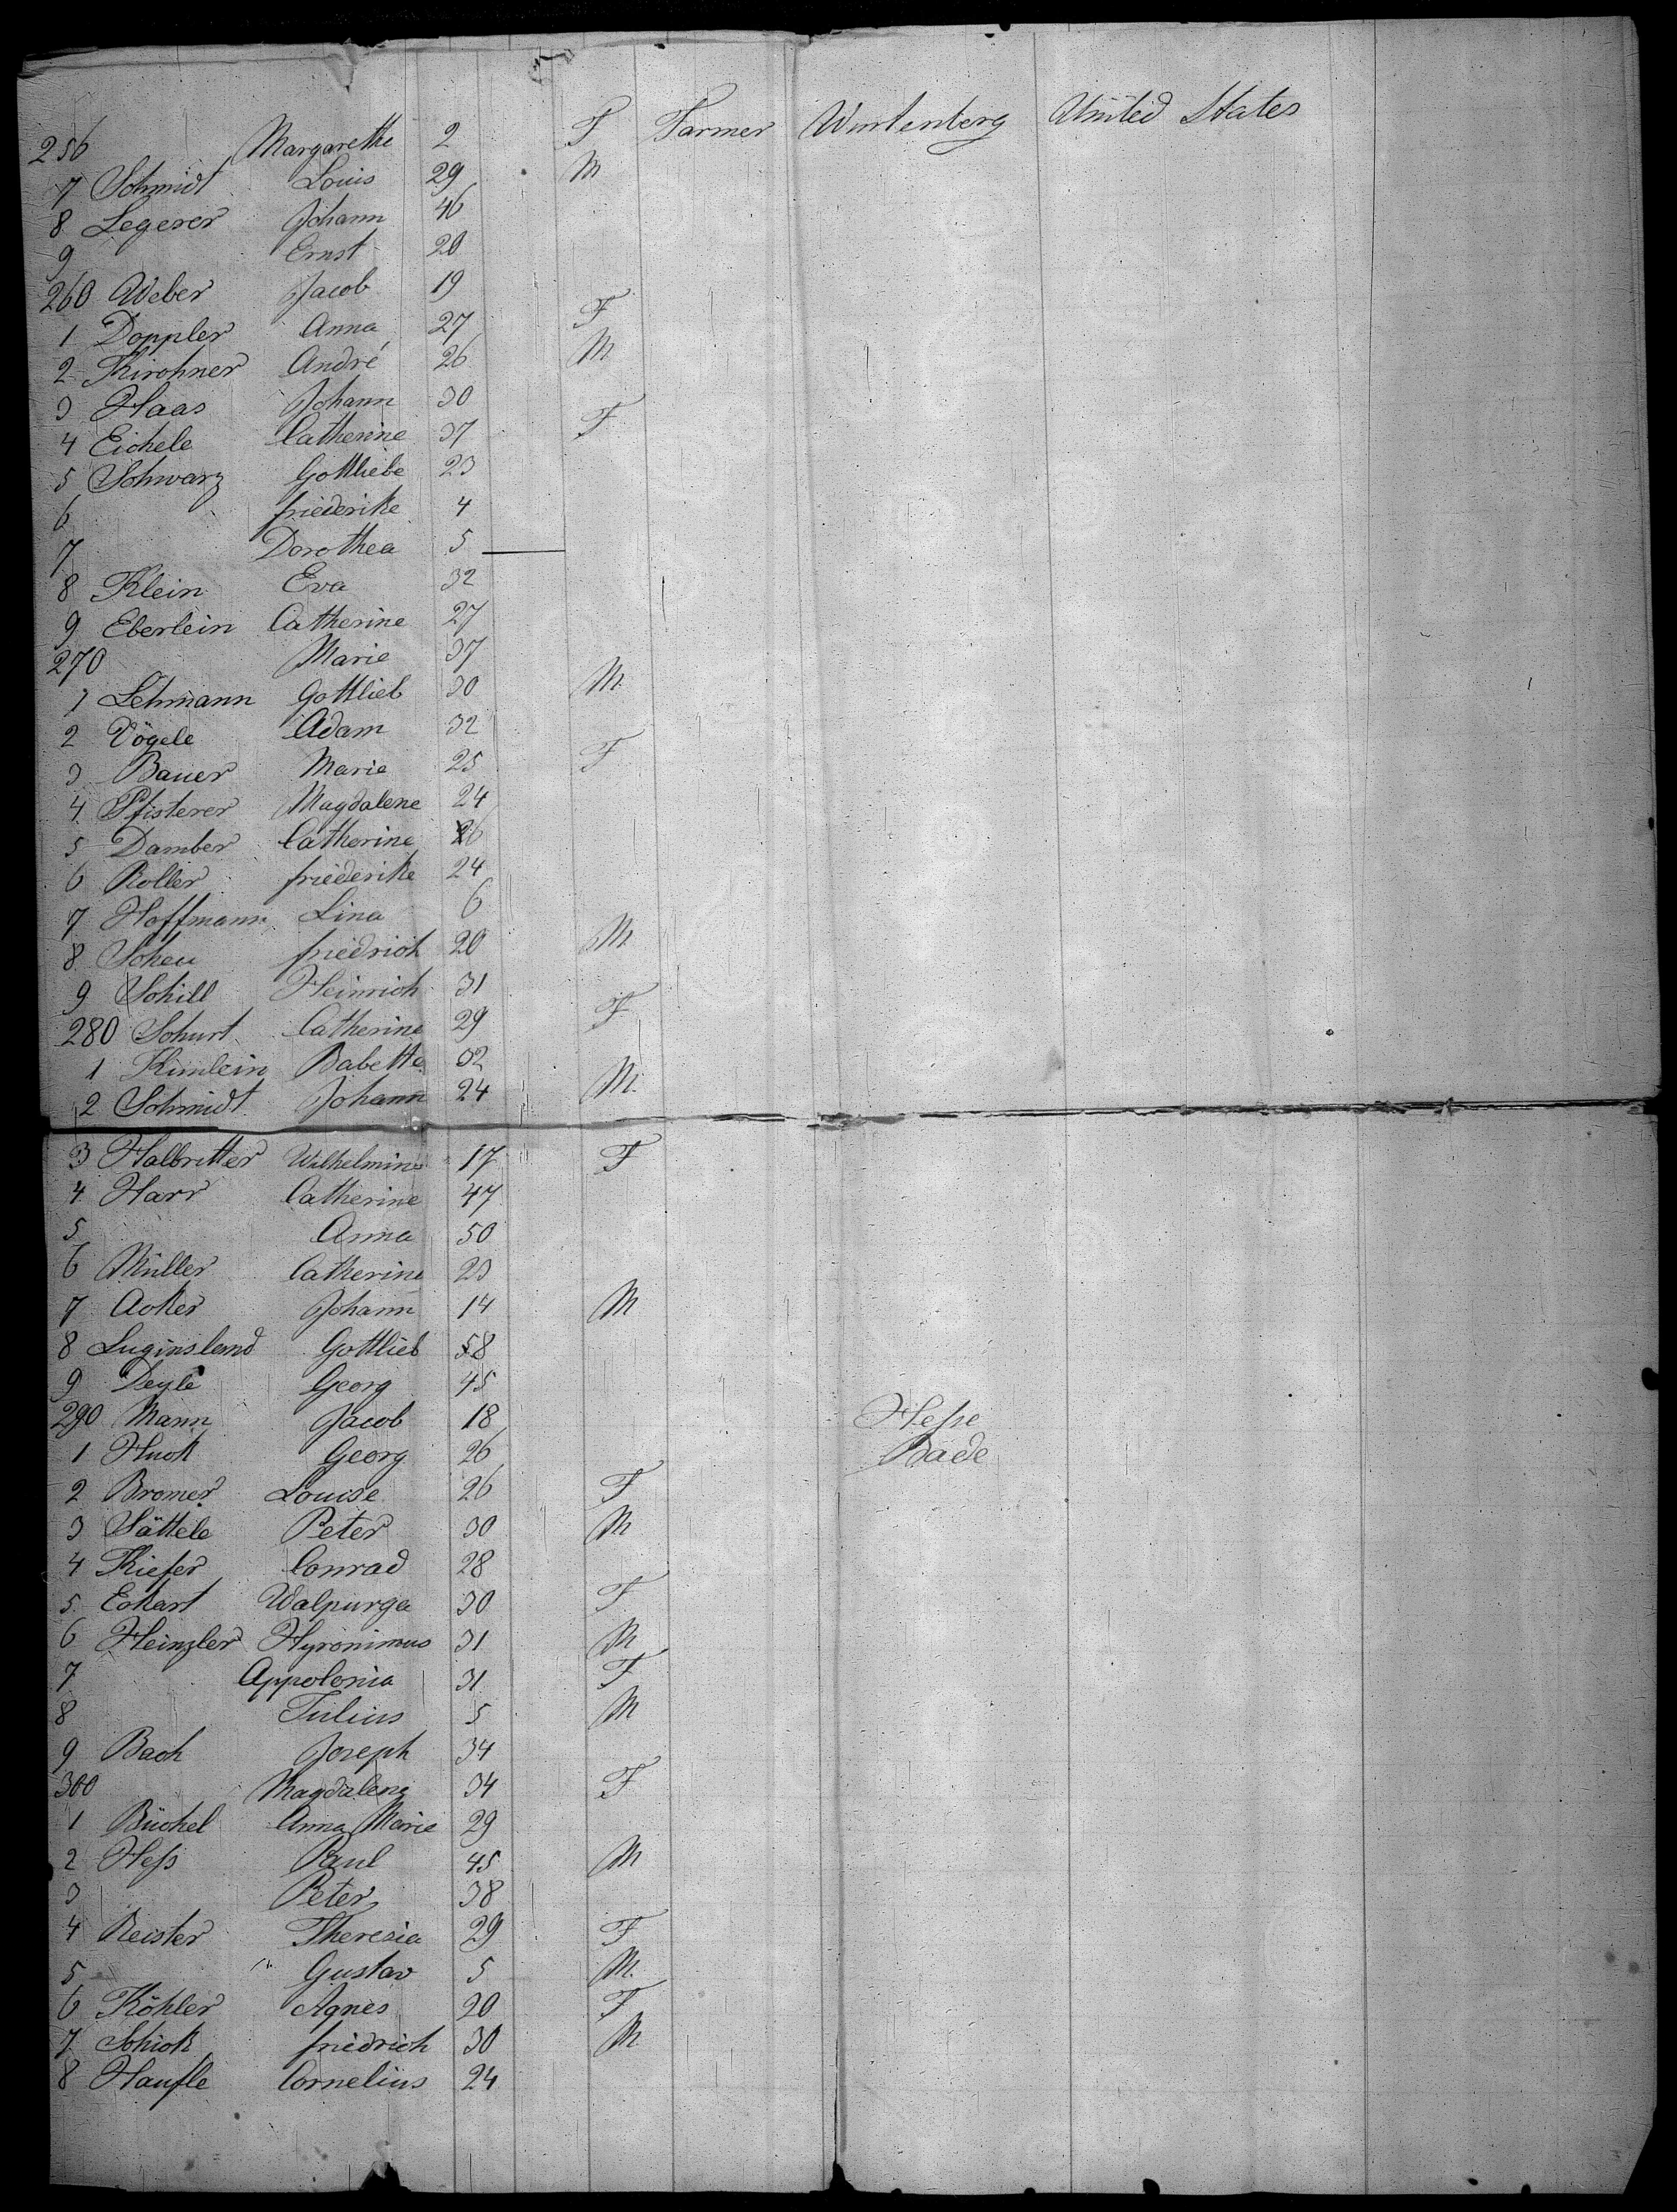 256 Margarethe 2 F Farmer Wurtenberg United States
7 Schmidt Louis 29 M
8 Legerer Johann 46
9 Ernst 20
260 Weber Jacob 19
1 Doppler Anna 27 F
2 Kirchner André 26 M
3 Haas Johann 30
4 Eichele Catherine 37 F
5 Schwarz Gottliebe 23
6 friederike 4
7 Dorothea 5
8 Klein Eva 32
9 Eberlein Catherine 27
270 Marie 37
1 Lehmann Gottlieb 30 M
2 Vögele Adam 32
3 Bauer Marie 25 F
4 Pfisterer Magdalene 24
5 Damber Catherine 26
6 Roller friederike 24
7 Hoffmann Lina 6
8 Scheu friedrich 20 M
9 Schill Heinrich 31
280 Schurt Catherine 29 F
1 Kimlein Babette 32
2 Schmidt Johann 24 M
3 Halbritter Wilhelmine 17 F
4 Harr Catherine 47
5 Anna 50
6 Müller Catherine 23
7 Acker Johann 14 M
8 Luginsland Gottlieb 58
9 Deyle Georg 45
290 Mann Jacob 18 Hesse
1 Huck Georg 26 Bade
2 Bromer Louise 26 F
3 Sättele Peter 30 M
4 Kiefer Conrad 28
5 Eckart Walpurga 30 F
6 Heinzler Hyronimus 31 M
7 Appolonia 31 F
8 Julius 5 M
9 Bach Joseph 34
300 Magdalena 34 F
1 Büchel Anna Marie 29
2 Hess Paul 45 M
3 Peter 38
4 Reister Theresia 29 F
5 " Gustav 5 M
6 Köhler Agnes 20 F
7 Schick friedrich 30 M
8 Haufle Cornelius 24